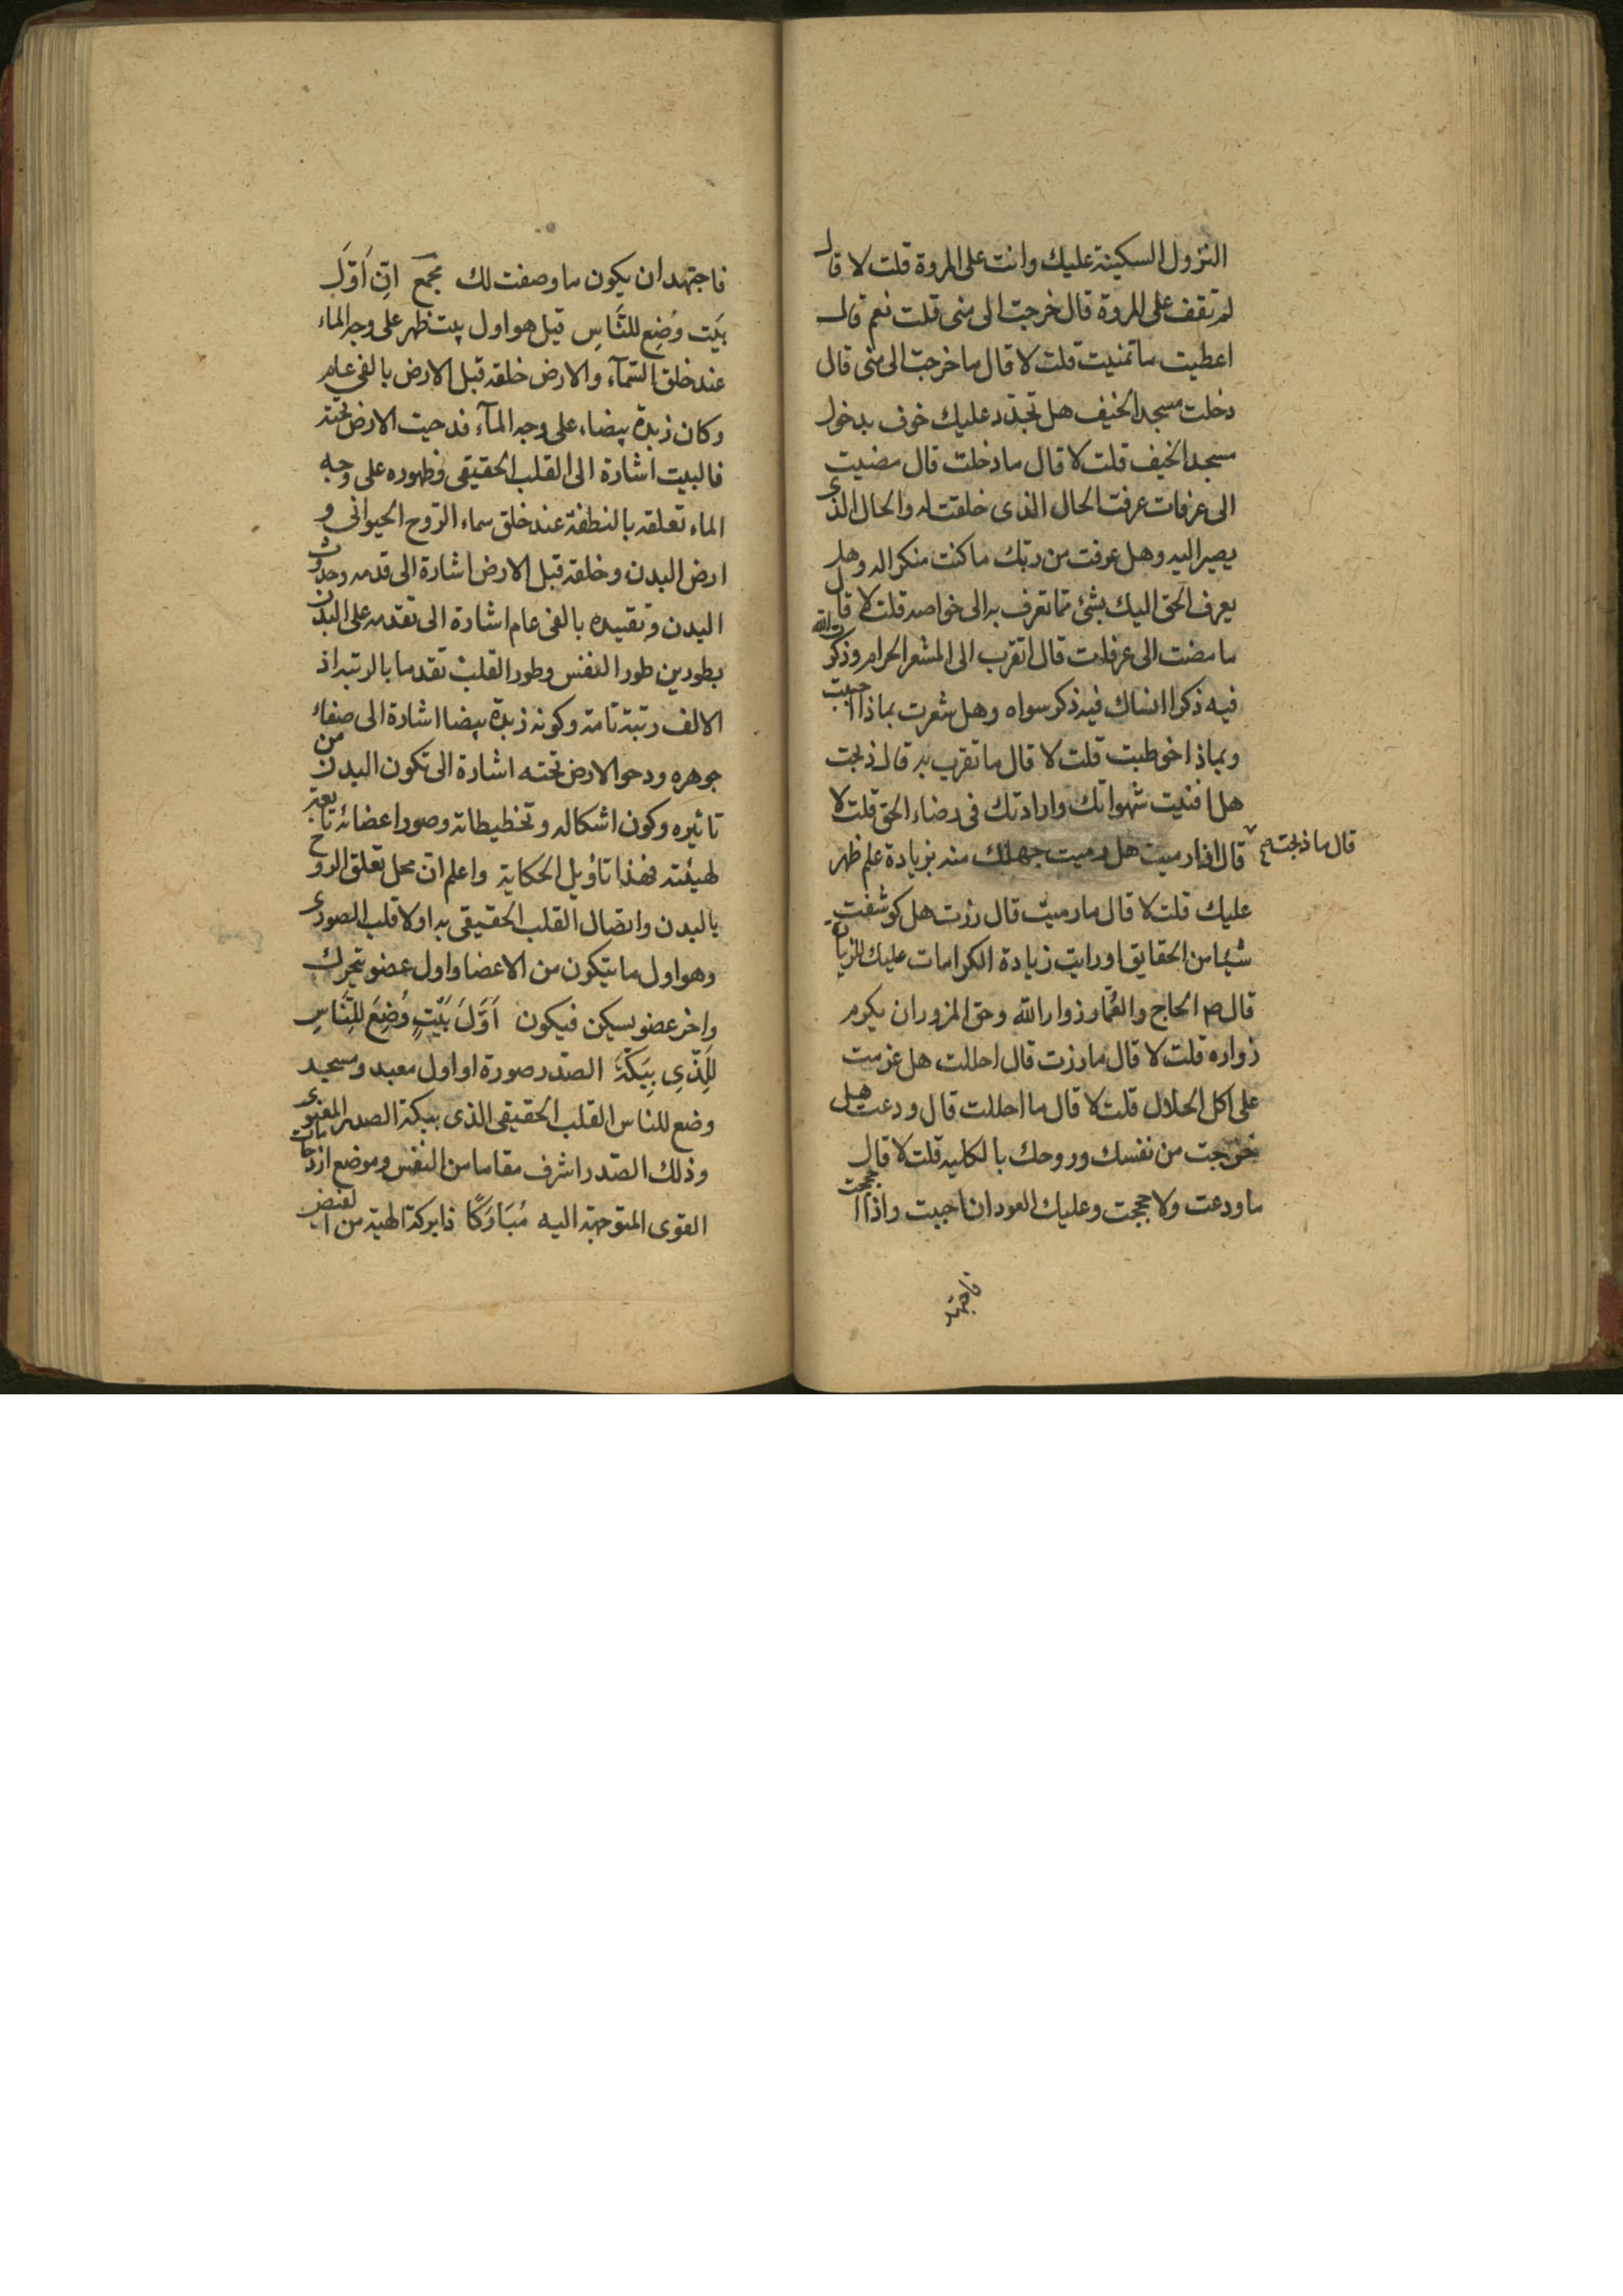 النزول السكينة عليك وانت على المروة قلت لا قال
لم تقف على المروة قال خرجت الى منى قلت نعم قال
اعطيت ما تمنيت قلت لا قال ما خرجت الى منى قال
دخلت مسجد الخيف هل تجدد عليك خوف بدخول
مسجد الخيف قلت لا قال ما دخلت قال مضيت
الى عرفات عرفت الحال الذى خلقت له والحال الذى
يصير اليه وهل عرفت من ربك ما كنت منكرا له وهل
يعرف الحق اليك بشئ مما تعرف به الى خواصه قلت لا قال
ما مضت الى عرفات قال اتقرب الى المشعر الحرام وذكرت الله
فيه ذكرا انساك فيه ذكر سواه وهل شعرت بماذا اجبت
وبماذا خوطبت قلت لا قال ما تقرب به قال ذبحت
هل افنيت شهواتك وارادتك فى رضاء الحق قلت لا
قال ما ذبحت صح
قال افارميت هل رميت جهلك منه بزيادة علم ظهر
عليك قلت لا قال ما رميت قال زرت هل كوشفت
شيئا من الحقايق او رايت زيادة الكرامات عليك للزيارة
قال ص الحاج والعمار زوار الله وحق المزور ان يكرم
زواره قلت لا قال ما زرت قال احللت هل عزمت
على اكل الحلال قلت لا قال ما احللت قال ودعت هل
خرجت من نفسك وروحك بالكليه قلت لا قال
ما ودعت ولا حججت وعليك العود ان احببت واذا حججت
فاجتهد
فاجتهد ان يكون ما وصفت لك مجمع اِنّ اَوَّلَ
بَيْت وُضِع للنَّاسِ قيل هو اول بيت ظهر على وجه الماء
عند خلق السّمآء والارض خلقه قبل الارض بالفى عام
وكان زبدة بيضاء على وجه المآء فدحيت الارض تحته
فالبيت اشارة الى القلب الحقيقى وظهوره على وجه
الماء تعلقه بالنطفة عند خلق سماء الروح الحيوانى و
ارض البدن وخلقه قبل الارض اشارة الى قدمه وحدوث
البدن وتقييده بالفى عام اشارة الى تقدمه على البدن
بطورين طور النفس وطور القلب تقدما بالرتبه اذ
الالف رتبة تامة وكونه زبدة بيضا اشارة الى صفاء
جوهره ودحو الارض تحته اشارة الى تكون البدن من
تاثيره وكون اشكاله وتخطيطاته وصور اعضائه تابعة
لهيئته فهذا تأويل الحكاية واعلم انّ محل تعلق الروح
بالبدن واتصال القلب الحقيقى به اولا قلب الصورى
وهو اول ما يتكون من الاعضا واول عضو يتحرك
واخر عضو يسكن فيكون اَوَّلَ بَيْتٍ وُضِعَ لِلنَّاسِ
لَلَّذِى بِبَكَّةَ الصّدر صورة او اول معبد ومسجد
وضع للناس القلب الحقيقى الذى ببكة الصدر المعنوى
وذلك الصّدر اشرف مقاما من النفس وموضع ازدحامات
القوى المتوجهة اليه مُبَارَكًا ذا بركة الهية من الفيض